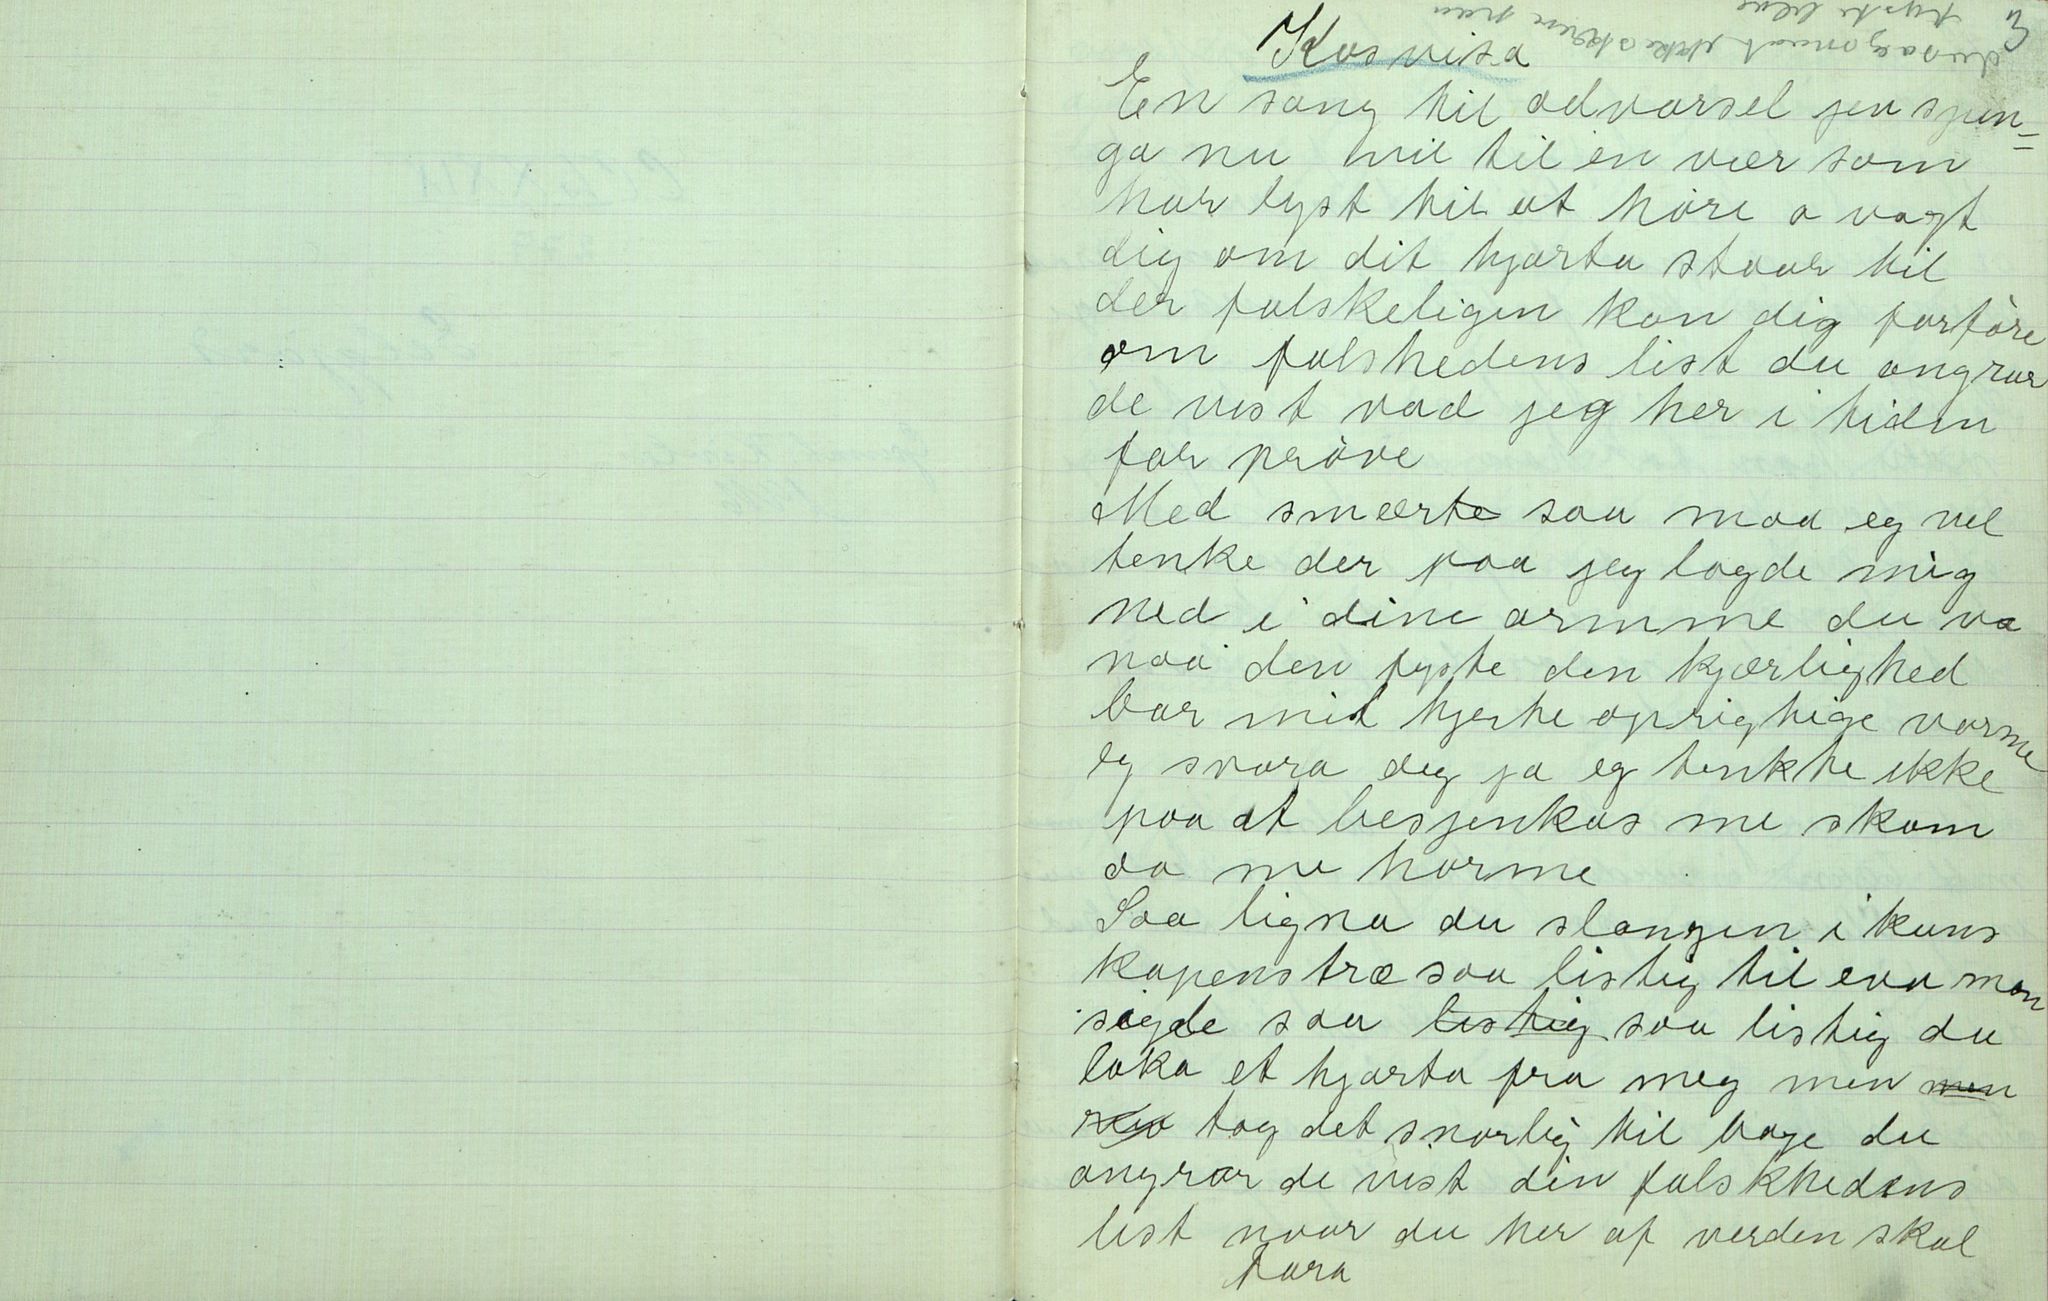 3
du sa eg maat ikke skrive paa
fyste blae
Kosvisa
En sang til advarsel jeu sjun-
ga nu vil til en vær som
har lyst til at høre a vagt
dig om dit hjarta staar til
der falskeligen kan dig forføre
om falshedens list du angrar
de vist vad jeg her i tiden
far prøve
Med smærte saa maa eg vel
tenke der paa jeg lagde mig
ned i dine armme du va
naa den fyste den kjærlighed
bar mit hjerte oprigtige varme
eg svara deg ja eg tenkte ikke
paa at besjenkas me skam
aa me harme
Saa ligna du slangen i kuns
kapens træ saa listig til eva man
sigde saa listig saa listig du
loka et hjarta fra meg men men
tag det snarlig til bage du
angrar de vist din falskhedens
list naar du her af verden skal
fara